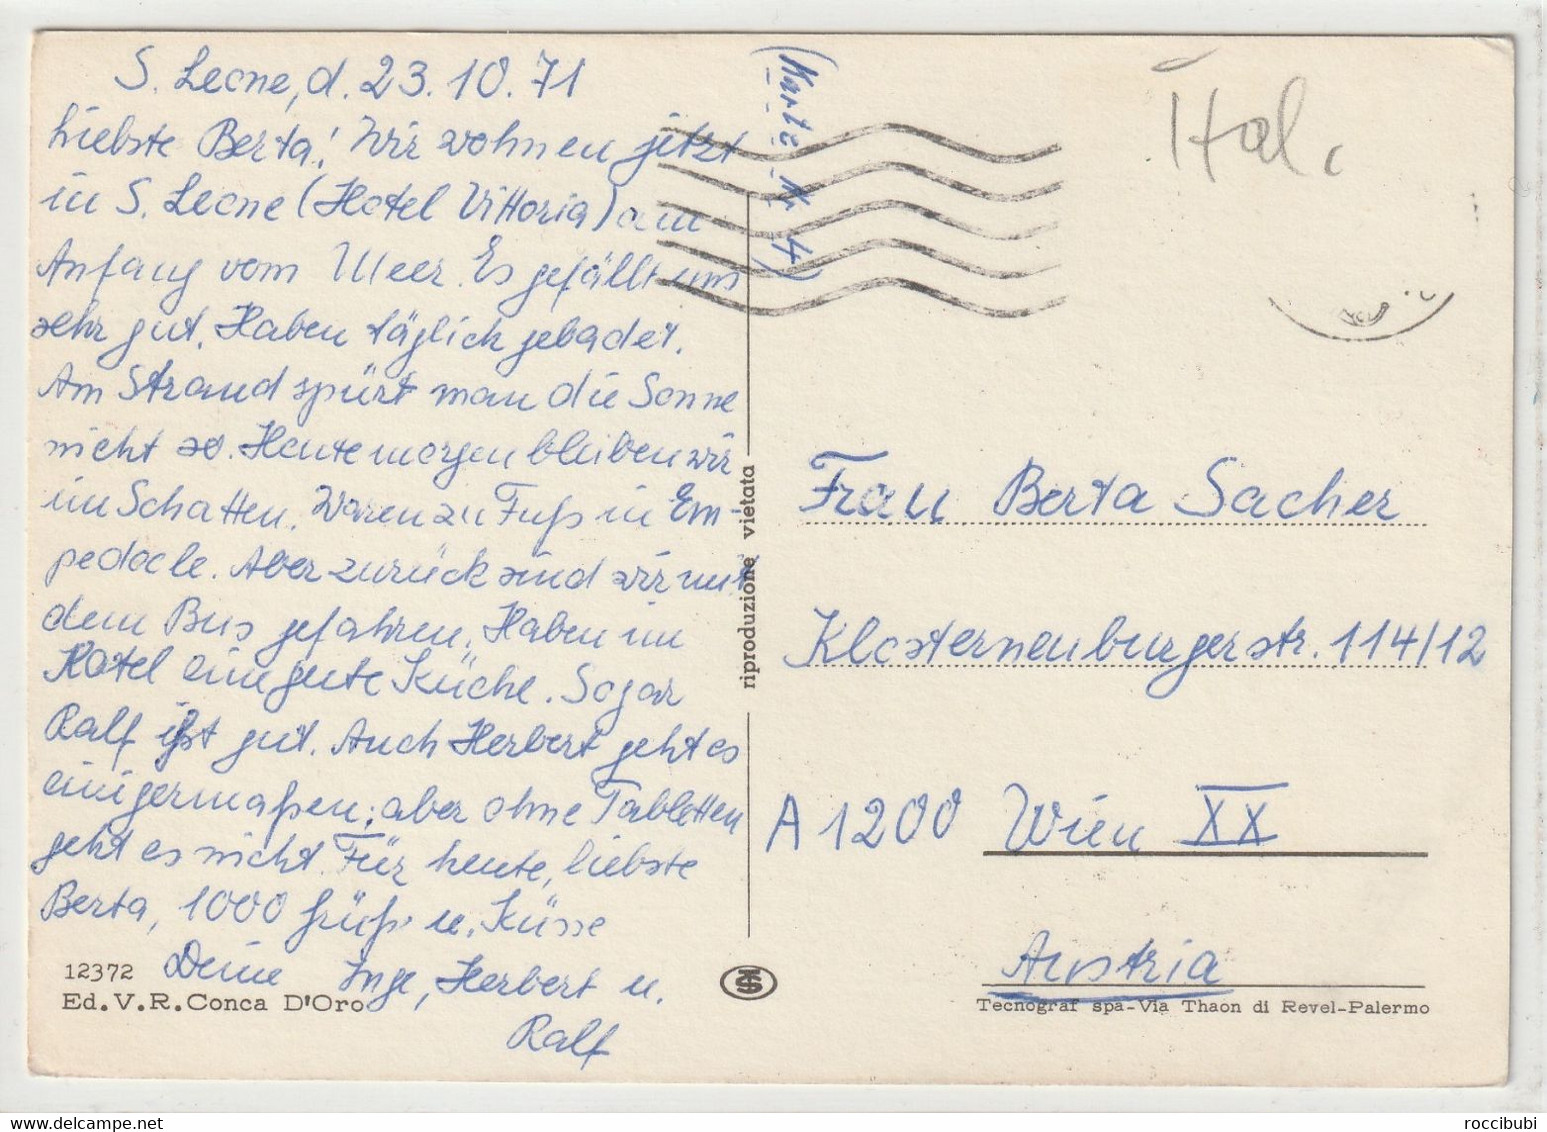 S. Leone, d. 23.10.71
Liebste Berta! Wir wohnen jetzt
in S. Leone (Hotel Vittoria) am
Anfang vom Meer. Es gefällt uns
sehr gut. Haben täglich gebadet.
Am Strand spürt man die Sonne
nicht so. Heute morgen bleiben wir
im Schatten. Waren zu Fuß in Em-
pedocle. Aber zurück sind wir mit
dem Bus gefahren. Haben im
Hotel eine gute Küche. Sogar
Ralf ißt gut. Auch Herbert geht es
einigermaßen; aber ohne Tabletten
geht es nicht. Für heute, liebste
Berta, 1000 Grüße u. Küsse
Deine Inge, Herbert u.
Ralf
(Karte Nr. 4)
12372
Ed. V. R. Conca D'Oro
riproduzione vietata
Ital.
Frau Berta Sacher
Klosterneuburgerstr. 114/12
A 1200 Wien XX
Austria
Tecnograf spa-Via Thaon di Revel-Palermo
roccibubi